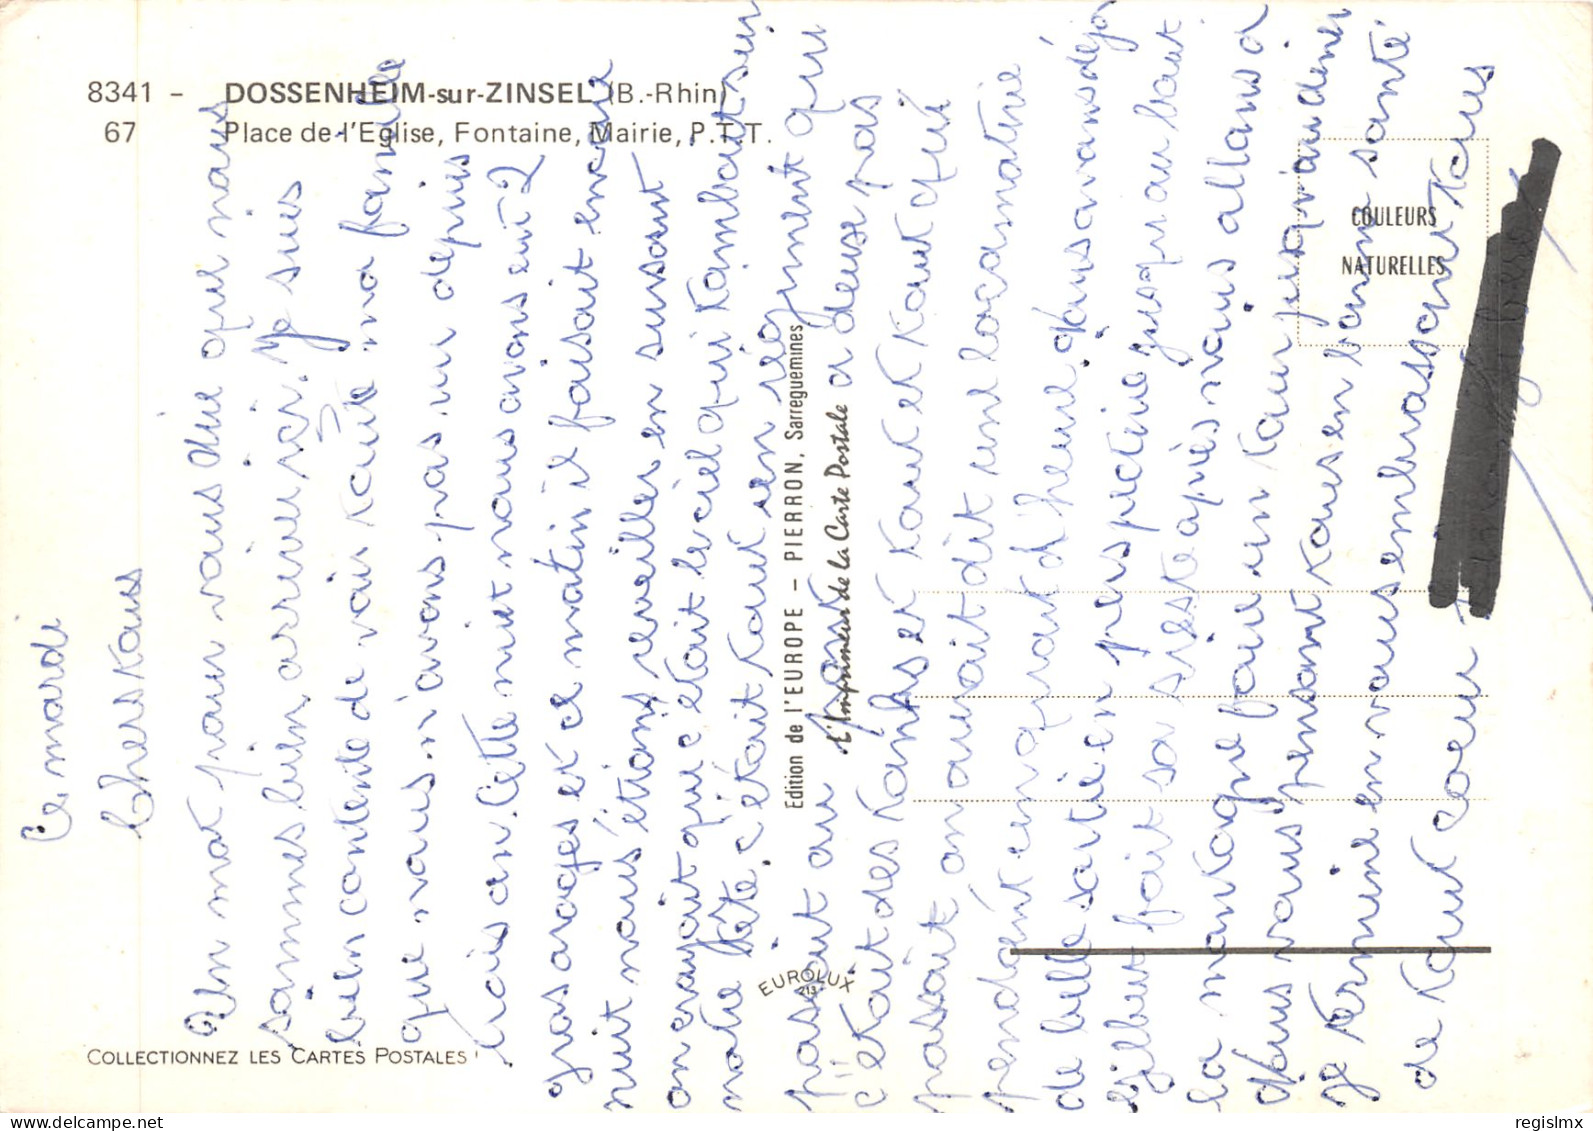 8341 - DOSSENHEIM-sur-ZINSEL (B.-Rhin)
67 Place de l'Eglise, Fontaine, Mairie, P.T.T.
COULEURS
NATURELLES
Edition de l'EUROPE - PIERRON, Sarreguemines
L'Imprimeur de la Carte Postale
EUROLUX
213
COLLECTIONNEZ LES CARTES POSTALES !
Ce mardi
Chers tous
Un mot pour vous dire que nous
sommes bien arriver ici. Je suis
bien contente de voir toute ma famille
que nous n'avons pas vu depuis
trois an. Cette nuit nous avons eut 2
gros orages et ce matin il faisait encore
nuit nous étions reveiller en sursaut
on croyait que c'était le ciel qui tombait sur
notre tête, c'était tout un régiment qui
passait au pont a deuse pas
c'était des tanks et tout et tout quii
passait on aurait dit une locomotive
pendant cinq quart d'heure. Nous avons déjà
de belle sortie en perspective jusqu'au bout
Gilbert fait sa sieste après nous allons a
la montagne faire un tour jusqu'au diner
Nous vous pensant tous en bonne santé
je termine en vous embrassant tous
de tout coeur
regislmx